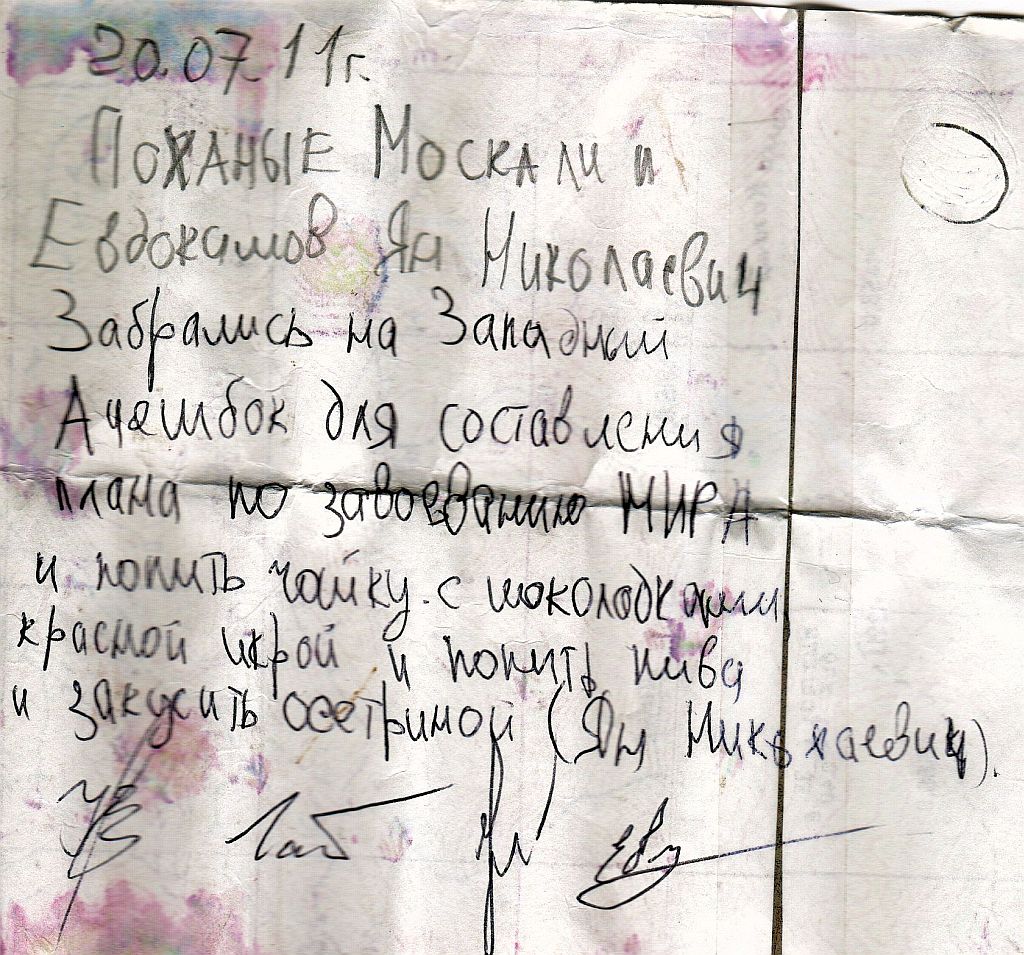 20.07.11г.
ПоХАНЫЕ Москали и
Евдокамов Ян Николаевич
Забрались на Западный
Ачешбок для составления
плана по завоеванию МИРА
и попить чайку с шоколадками
красной икрой и попить пива
и закусить осетриной (Ян Николаевич).